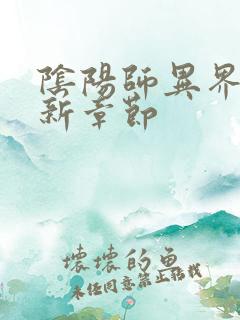 陰陽師異界
新章節
壞壞的魚
未任同意禁止搭載